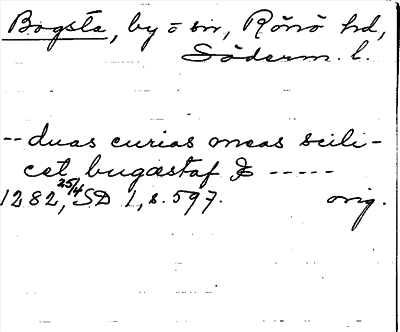 Bogsta, by o sn, Rönö hd,
Söderm. l.
-- duas curias meas scili-
cet bugæstaf & -----
1282, 25/4, SD 1, s. 597. orig.